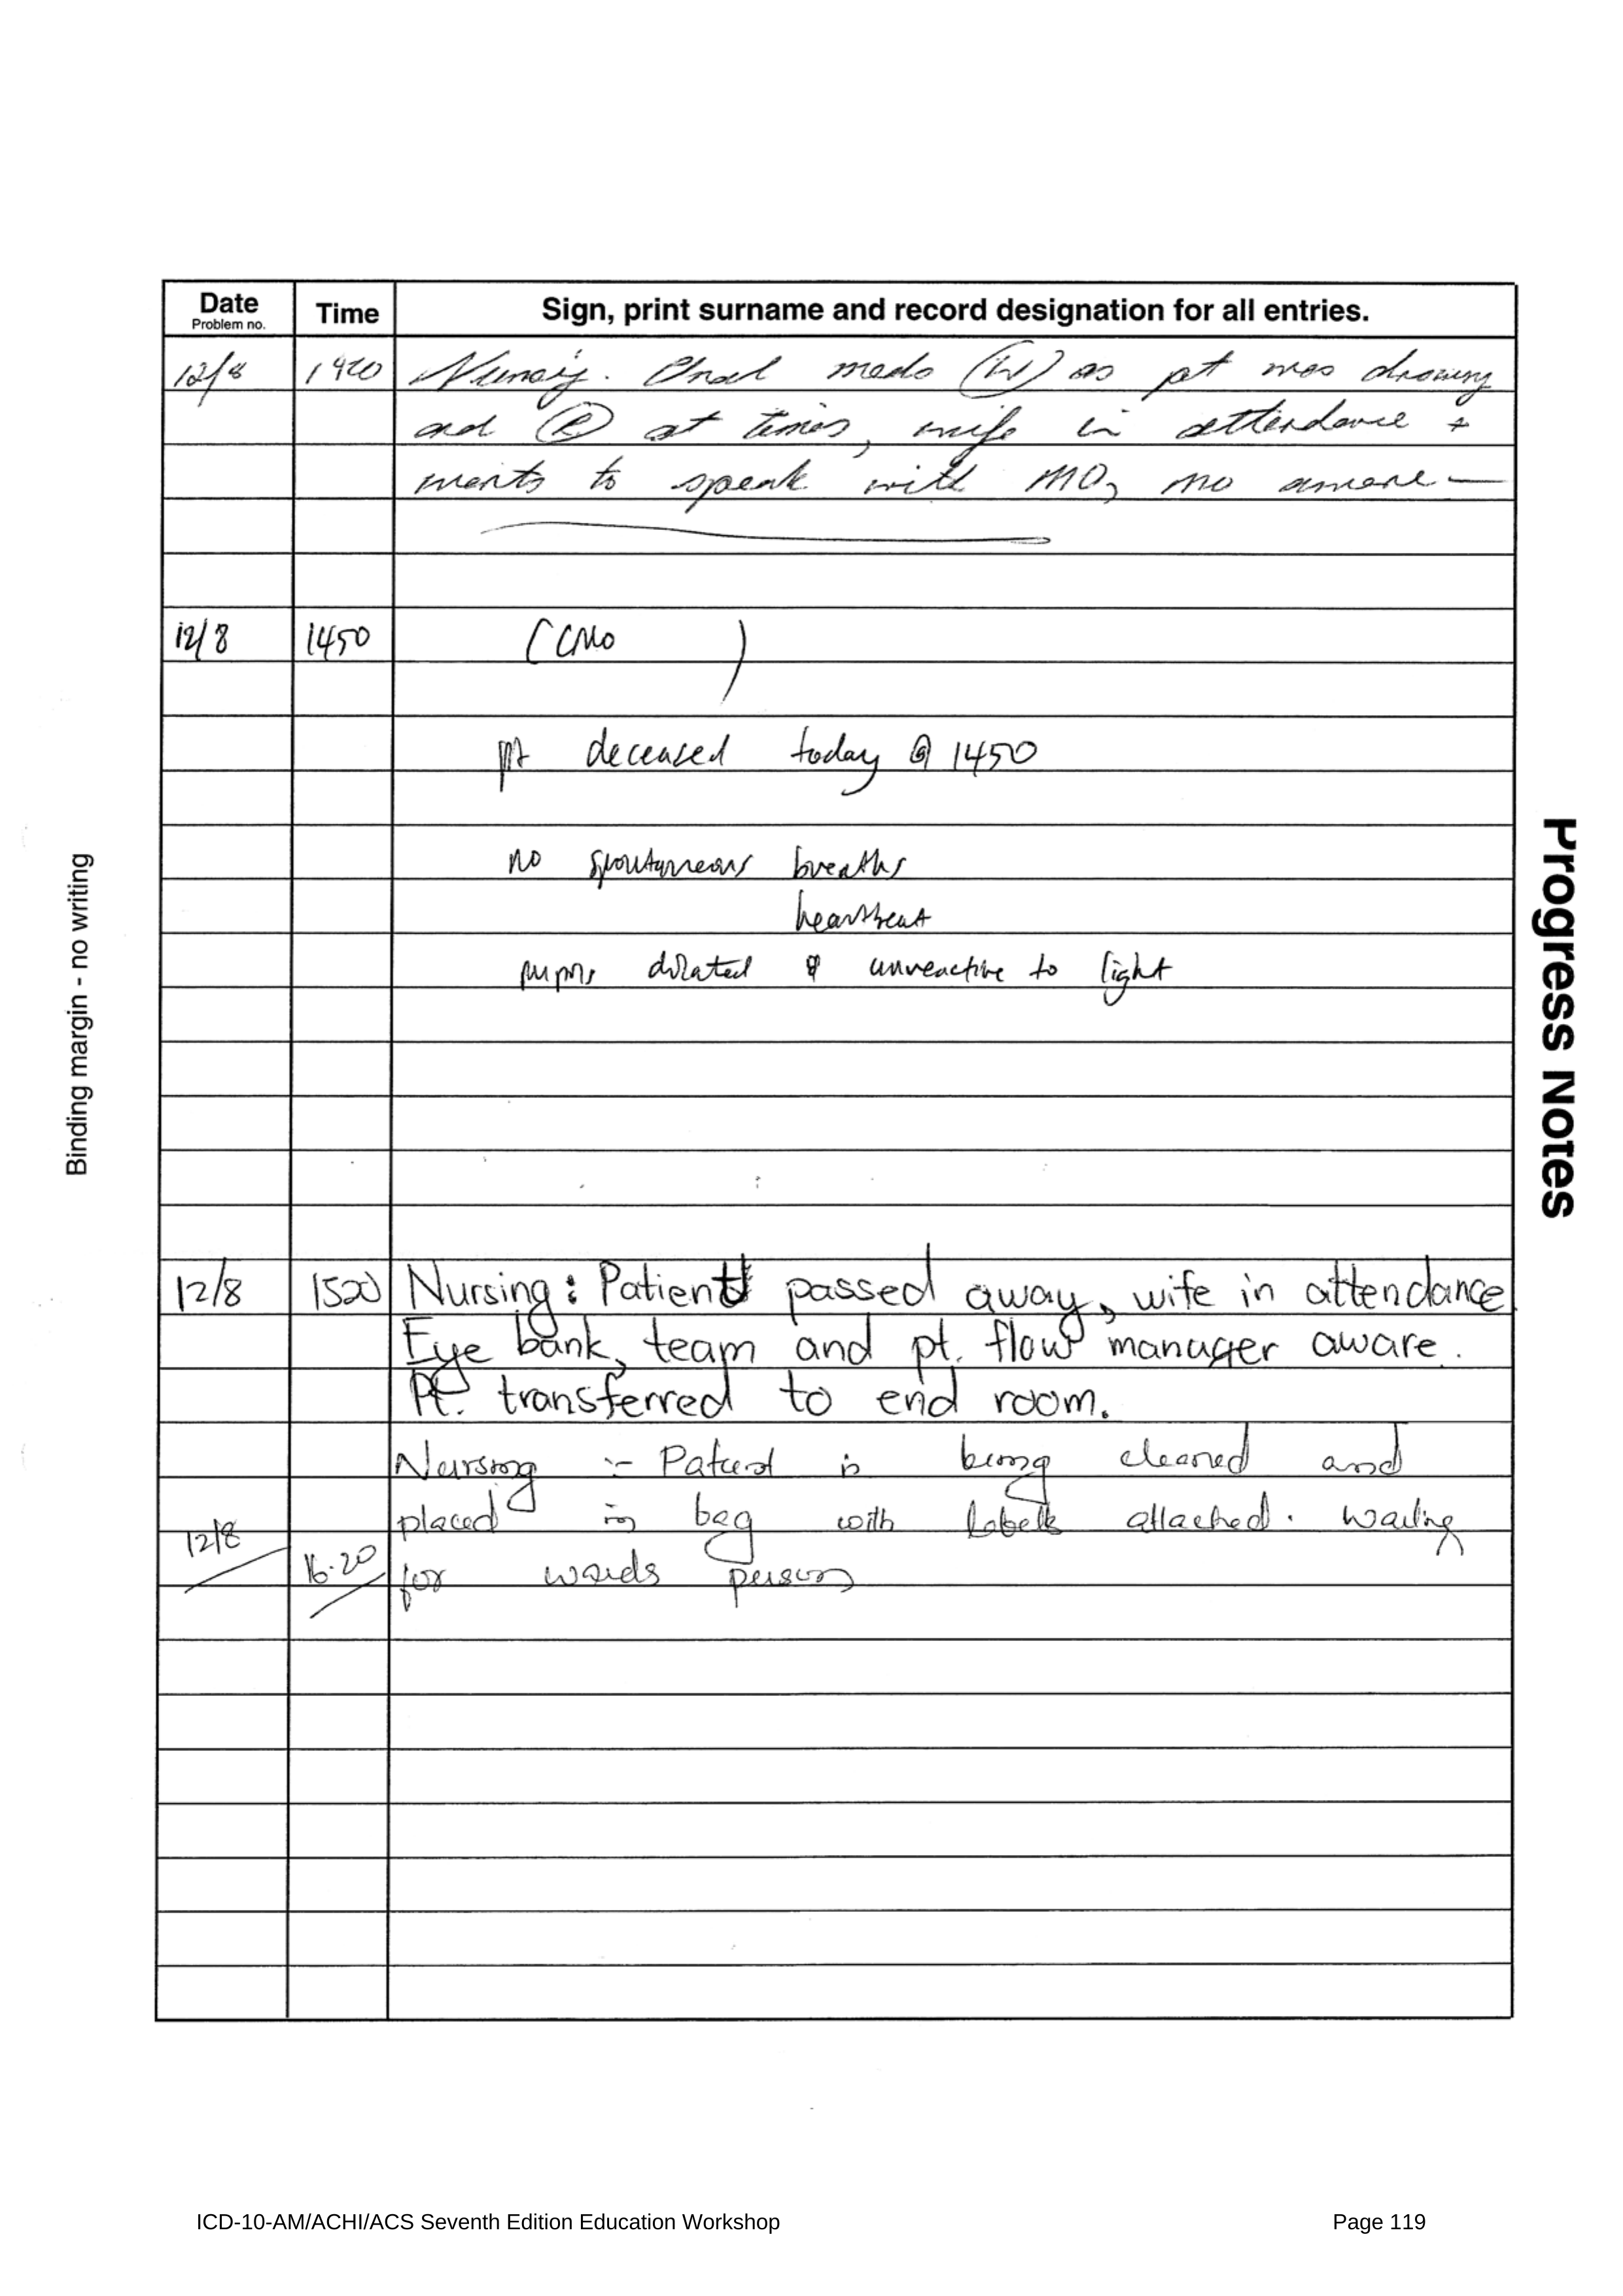 Date
Problem no.
Time
Sign, print surname and record designation for all entries.
12/8 1420 Nursing. Oral meds (W) as pt was drowsy
and (R) at times, wife in attendance +
wants to speak with MO, MO aware —
12/8 1450 (CMO )
pt deceased today @ 1450
no spontaneous breaths
heartbeat
pupils dilated & unreactive to light
12/8 1520 Nursing: Patient passed away, wife in attendance
Eye bank, team and pt. flow manager aware.
Pt. transferred to end room.
Nursing :- Patient is being cleaned and
placed in bag with labels attached. Waiting
12/8 16.20 for wards person
Binding margin - no writing
Progress Notes
ICD-10-AM/ACHI/ACS Seventh Edition Education Workshop
Page 119